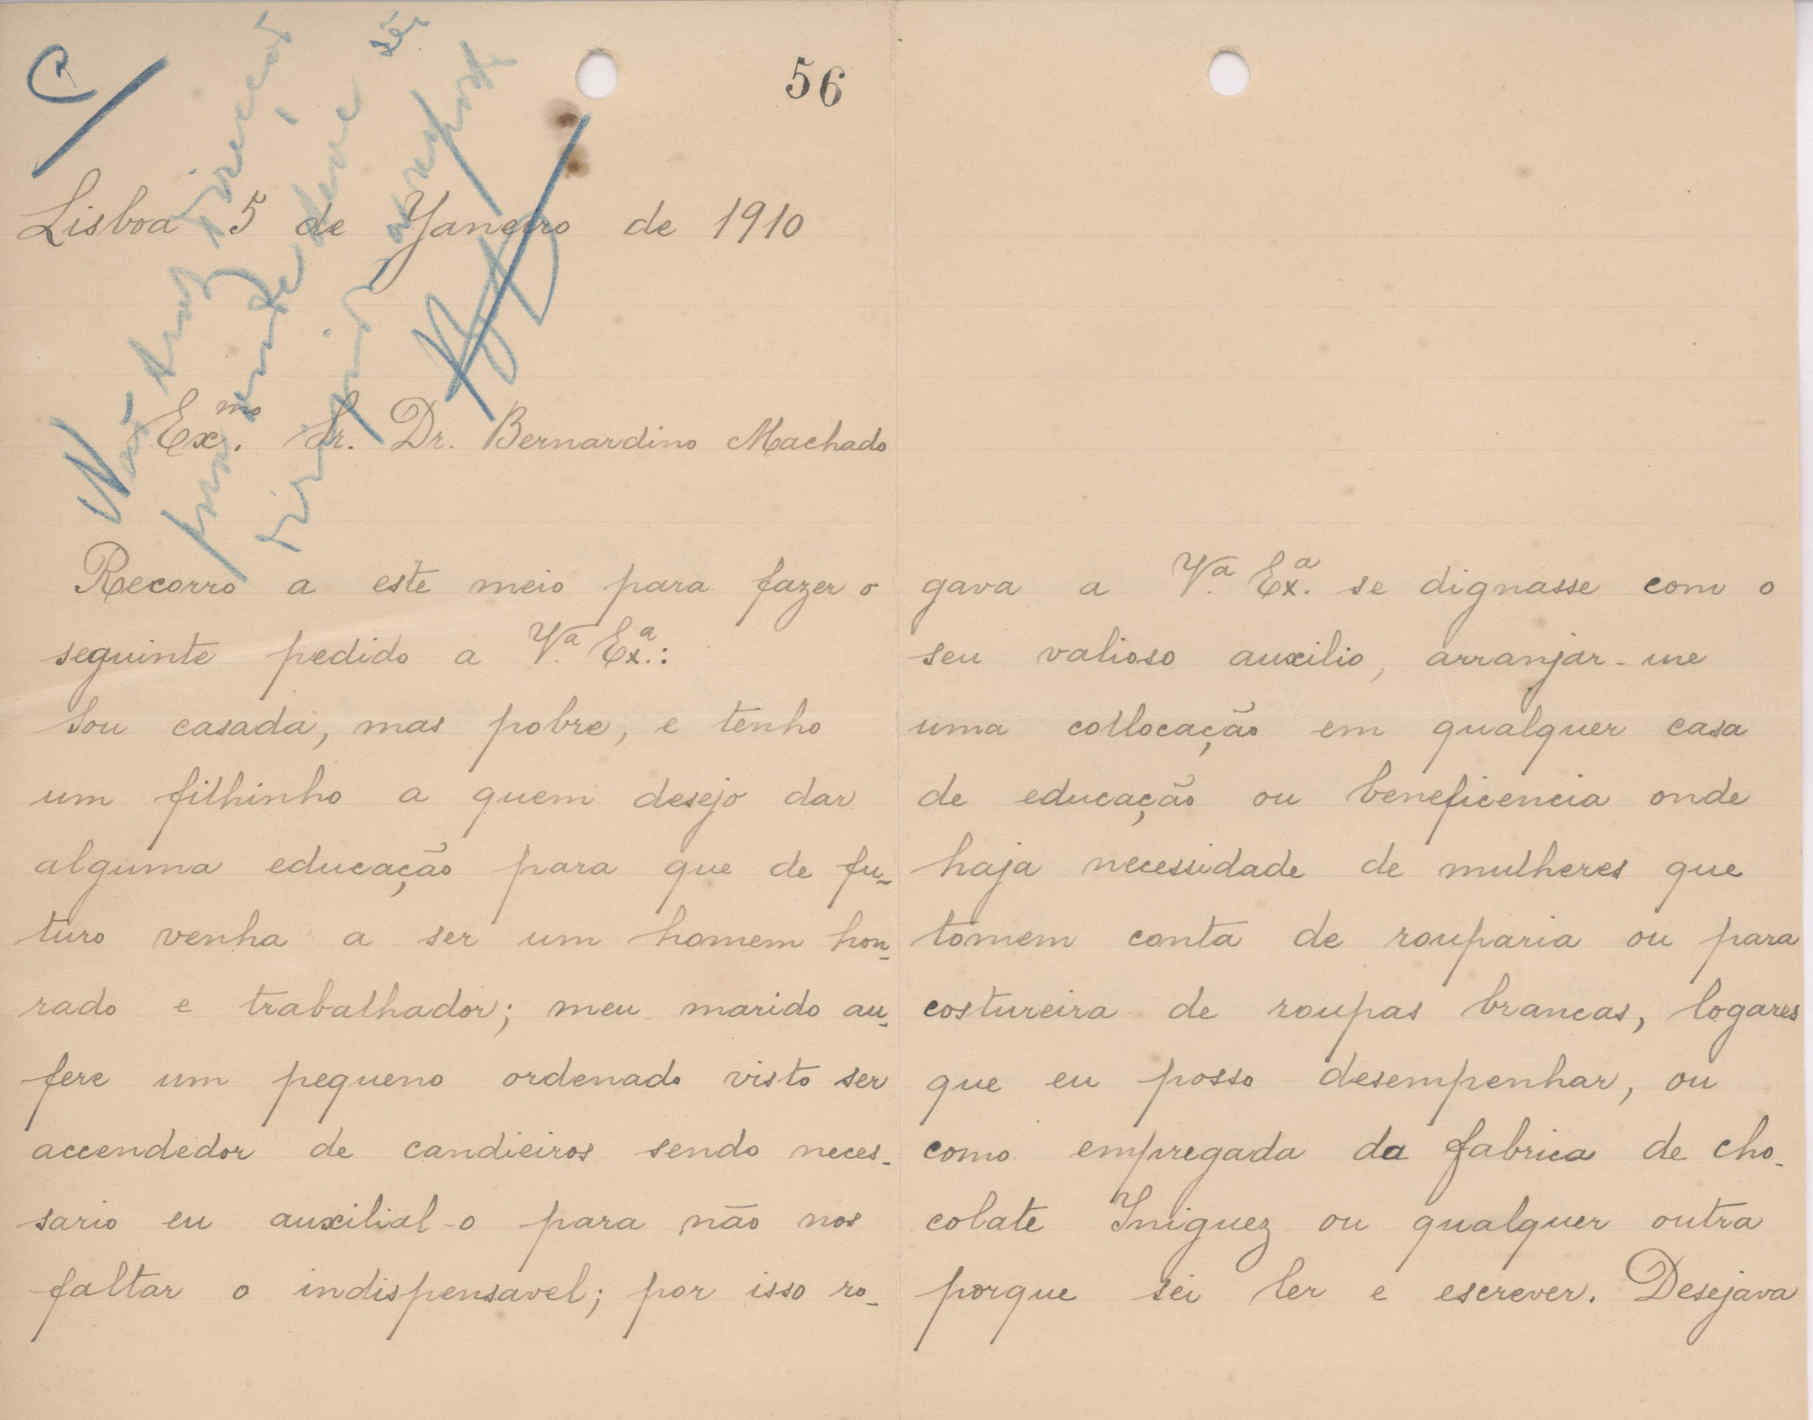 56
Lisboa 5 de Janeiro de 1910
Não traz direcção
para onde deve ser
dirigida a resposta
Ex.mo Sr. Dr. Bernardino Machado
Recorro a este meio para fazer o
seguinte pedido a V.a Ex.a:
Sou casada, mas pobre, e tenho
um filhinho a quem desejo dar
alguma educação para que de fu-
turo venha a ser um homem hon-
rado e trabalhador; meu marido au-
fere um pequeno ordenado visto ser
accendedor de candieiros sendo neces-
sario eu auxilial-o para não nos
faltar o indispensavel; por isso ro-
gava a V.a Ex.a se dignasse com o
seu valioso auxilio, arranjar-me
uma collocação em qualquer casa
de educação ou beneficencia onde
haja necessidade de mulheres que
tomem conta de rouparia ou para
costureira de roupas brancas, logares
que eu posso desempenhar, ou
como empregada da fabrica de cho-
colate Iniguez ou qualquer outra
porque sei ler e escrever. Desejava